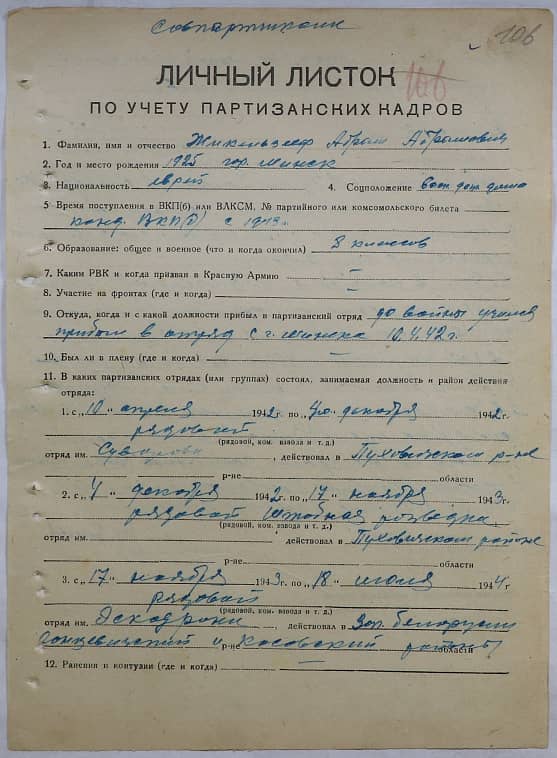 106
ЛИЧНЫЙ ЛИСТОК
ПО УЧЕТУ ПАРТИЗАНСКИХ КАДРОВ
1. Фамилия, имя и отчество Абрам Абрамович
2. Год и место рождения 1925 гор. Минск
3. Национальность еврей 4. Соцположение
5 Время поступления в ВКП(б) или ВЛКСМ, № партийного или комсомольского билета
канд. ВКП(б) с 1943г.
6. Образование: общее и военное (что и когда окончил) 8 классов
7. Каким РВК и когда призван в Красную Армию —
8. Участие на фронтах (где и когда) —
9. Откуда, когда и с какой должности прибыл в партизанский отряд до войны учился
прибыл в отряд с г. Минска 10.4.42г.
10. Был ли в плену (где и когда) —
11. В каких партизанских отрядах (или группах) состоял, занимаемая должность и район действия
отряда:
1. с „10“ апреля 1942г по „4“ декабря 1942г.
рядовой
(рядовой, ком. взвода и т. д.)
отряд им. Суворова, действовал в Пуховичском р-не
р-не области
2. с „4“ декабря 1942г по „17“ ноября 1943г.
рядовой штабная разведка
(рядовой, ком. взвода и т. д.)
отряд им. действовал в Пуховичском районе
р-не области
3. с „17“ ноября 1943г. по „18“ июля 1944г
рядовой
(рядовой, ком. взвода и т. д.)
отряд им. действовал в Зап. Белорусии
и Косовский районы р-не области
12. Ранения и контузии (где и когда) —